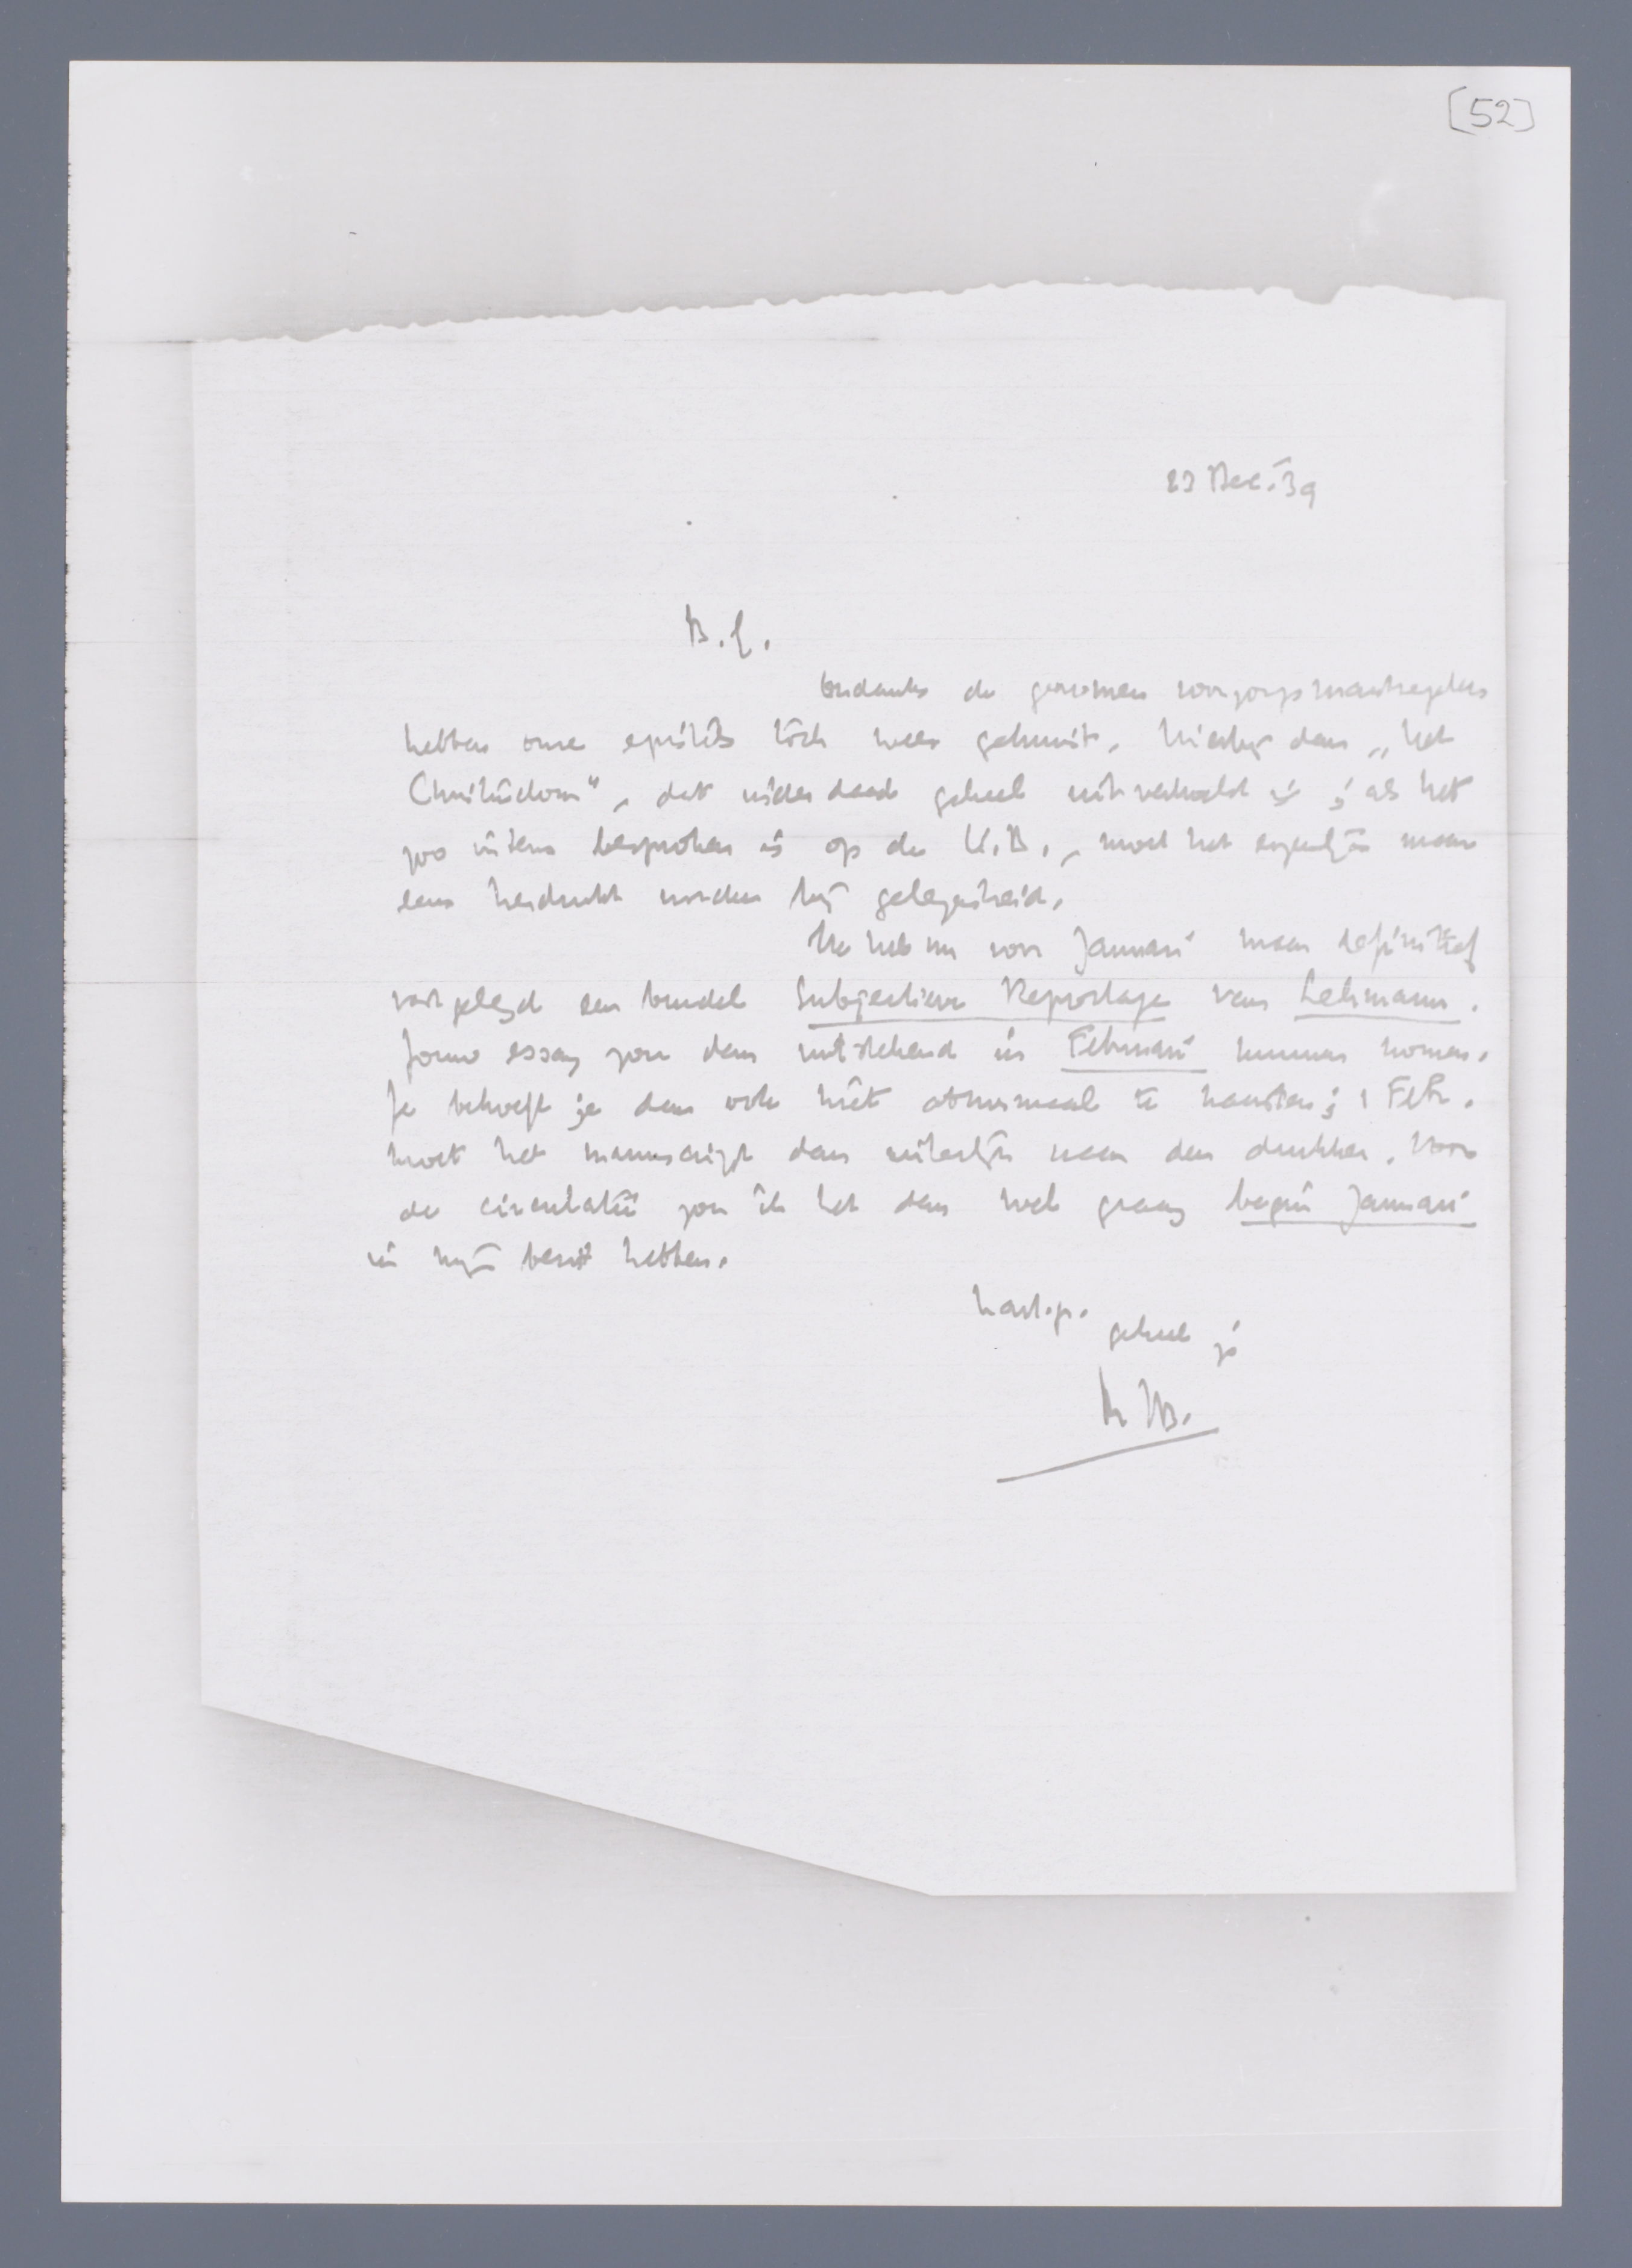 [52]
23 Dec. '39
B.G.
Ondanks de genomen voorzorgsmaatregelen
hebben onze epistels tòch weer gekruist. Hierbij dan „het
Christendom", dat inderdaad geheel uitverkocht is; als het
zoo intens besproken is op de U.B., moet het eigenlijk maar
eens herdrukt worden bij gelegenheid.
Ik heb nu voor Januari maar definitief
vastgelegd een bundel Subjectieve Reportage van Lehmann.
Jouw essay zou dan uitstekend in Februari kunnen komen.
Je behoeft je dan ook niet abnormaal te haasten; 1 Febr.
moet het manuscript dan uiterlijk naar den drukker. Voor
de circulatie zou ik het dan wel graag begin Januari
in mijn bezit hebben.
Hart. gr.
geheel je